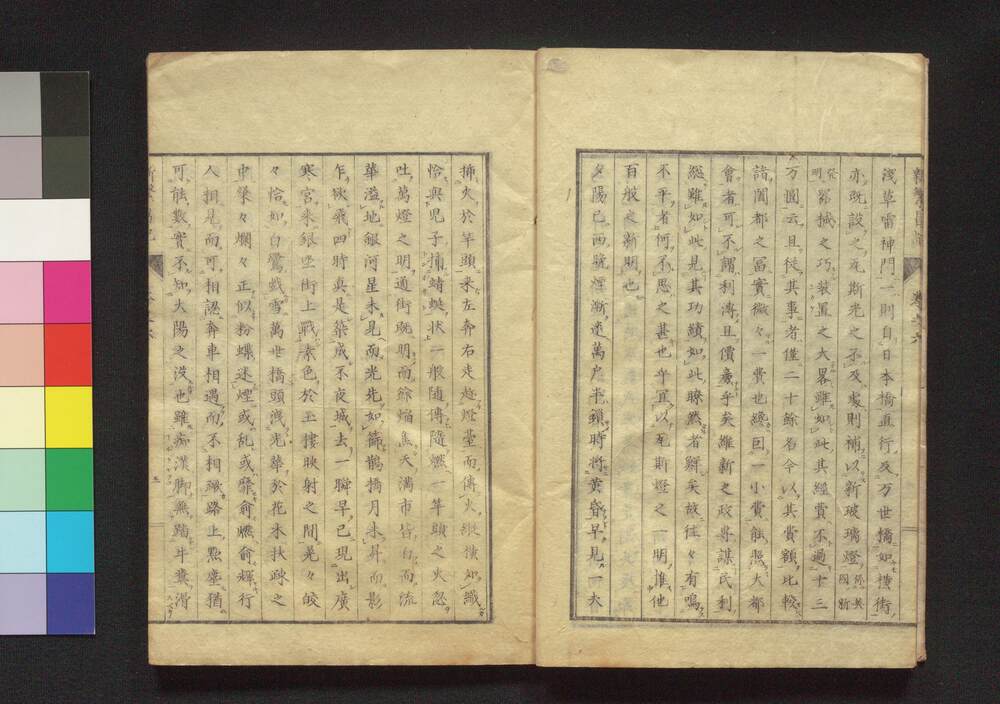 浅草雷神門一則自日本橋直行及万世橋如横街
亦既設之瓦斯光之不及處則補以新玻璃燈
器械之巧装置之大畧雖如此其經費不過十三
万圓云且従其事者僅二十餘名今以其費額比較
諸闔都之冨實微々一費也纔同一小費能照大都
會者可不謂利溥且價豪乎矣維新之政專謀民利
縦雖如此見其功績如此瞭然者鮮矣故往々有鳴
不平者何不思之甚也乎宜以瓦斯燈之一明推他
百般之漸明也
夕陽已西烟漸遠萬戸半鎖時将黄昏早見一夫
挿火於竿頭来左奔右走趁燈臺而傳火縦横如織
恰與児子捕蜻蜓状一般随傳随燃一竿頭之火忽
吐萬燈之明通街晩明而餘焔焦天満市皆白而流
華溢地銀河星未見而光先如篩鵲橋月未昇而影
乍欲飛四時真是築成不夜城去一瞬早已現出廣
寒宮来銀坐街上戰素色於玉樓映射之間晃々皎
々恰如白鷺戯雪萬世橋頭洩光華於花木扶疎之
中粲々爛々正似粉蝶迷煙或乱或靡俞燃俞輝行
人相見而可相認奔車相遇而不相觸路上點塵猶
可能數實不知大陽之没也雖痴漢脚無踏牛糞滑